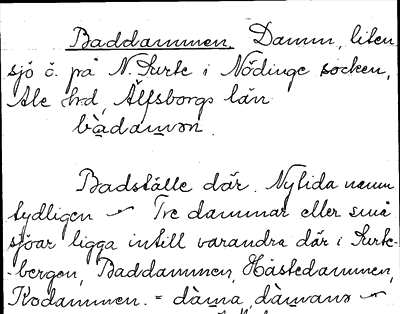 Baddammen. Damm, liten
sjö ö. på N. Surte i Nödinge socken,
Ale hrd, Älfsborgs län
bàdamən.
Badställe där. Nytida namn
tydligen – Tre dammar eller små
sjöar ligga intill varandra där i Surte-
-bergen, Baddammen, Hästedammen,
Kodammen. =